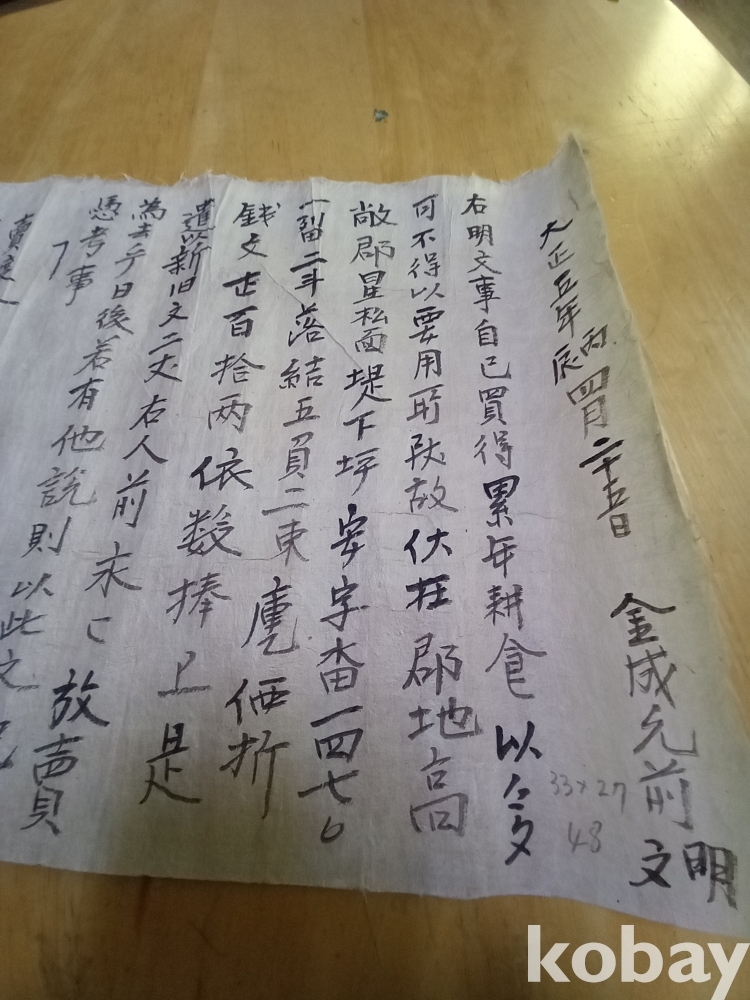 大正五年丙辰四月二十五日 金成元前 明文
右明文事自己買得累年耕食 以今
可不得以要用所致故伏在郡地高
敞郡星松面堤下坪 安字畓一四七
二斗落結五負二束 庫價折
錢文 百拾兩依数捧上是
遣以新旧文二丈右人前永〻放賣
為去乎日後若有他說則以此文
憑考事
33×27
48
kobay